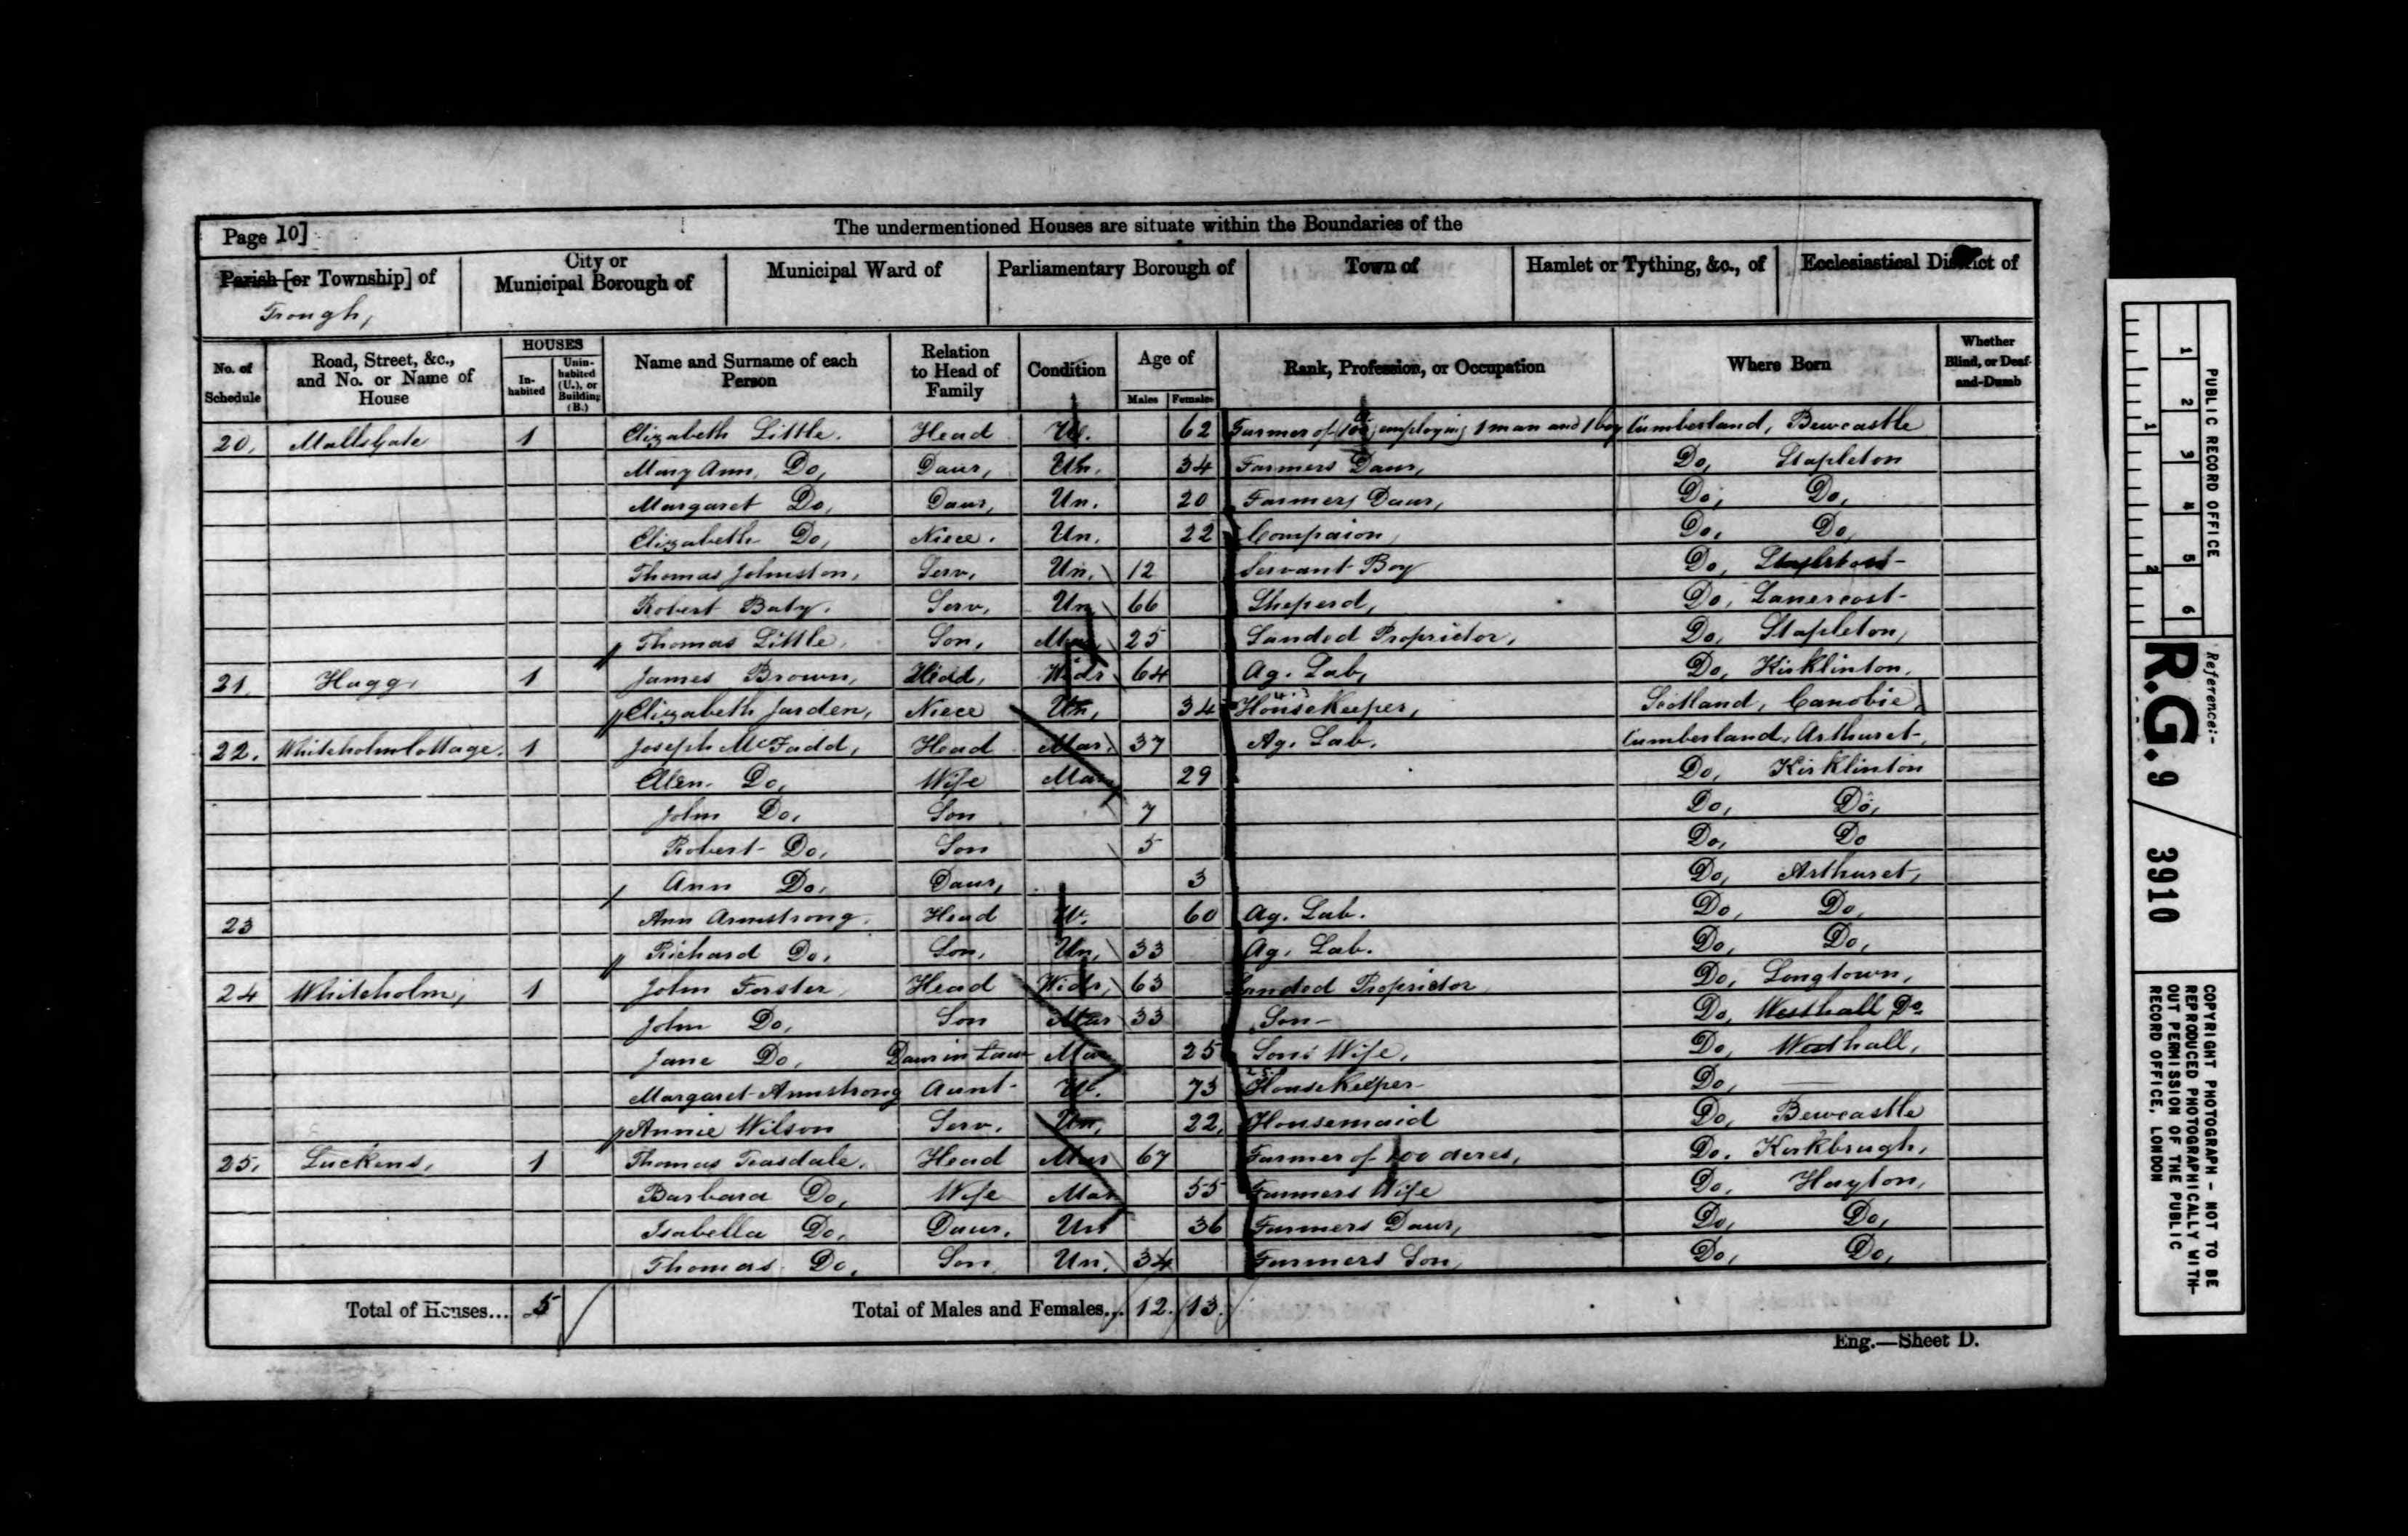 Page 10]
The undermentioned Houses are situate within the Boundaries of the
Parish [or Township] of
Trough,
City or
Municipal Borough of
Municipal Ward of
Parliamentary Borough of
Town of
Hamlet or Tything, &c., of
Ecclesiastical District of
No. of Schedule
Road, Street, &c., and No. or Name of House
HOUSES
In-habited
Unin-habited (U.), or Building (B.)
Name and Surname of each Person
Relation to Head of Family
Condition
Age of
Males
Females
Rank, Profession, or Occupation
Where Born
Whether Blind, or Deaf-and-Dumb
20, Mallsgate 1 Elizabeth Little. Head W. 62 Farmer of employing 1 man and 1 boy Cumberland, Bewcastle
Mary Ann, Do, Daur, Un. 34 Farmers Daur, Do, Stapleton
Margaret Do, Daur, Un. 20 Farmers Daur, Do, Do,
Elizabeth Do, Niece. Un. 22 Compaion, Do, Do,
Thomas Johnston, Serv, Un. 12 Servant Boy Do, Stapleton
Robert Baty. Serv, Un 66 Sheperd, Do, Lanercost
Thomas Little, Son, Mar, 25 Landed Proprietor, Do, Stapleton,
21, Hagg, 1 James Brown, Head, Widr 64 Ag. Lab, Do, Kirklinton,
Elizabeth Jarden, Niece Un, 34 HouseKeeper, Scotland, Canobie
22. Whiteholm Cottage. 1 Joseph McFadd, Head Mar, 37 Ag. Lab. Cumberland, Arthuret,
Ellen Do, Wife Mar 29 Do, Kirklinton
John Do, Son 7 Do, Do,
Robert Do, Son 5 Do, Do
Ann Do, Daur, 3 Do, Arthuret,
23 Ann Armstrong. Head W. 60 Ag. Lab. Do, Do,
Richard Do, Son, Un, 33 Ag. Lab. Do, Do,
24 Whiteholm, 1 John Forster, Head Widr, 63 Landed Proprietor Do, Longtown,
John Do, Son Mar 33 Son Do, Westhall Do.
Jane Do, Daur in Law Mar 25 Sons Wife, Do, Westhall,
Margaret Armstrong Aunt W. 73 HouseKeeper Do,
Annie Wilson Serv. Un, 22, Housemaid Do, Bewcastle
25, Luckens, 1 Thomas Teasdale. Head Mar 67 Farmer of 100 acres, Do. Kirkbrugh,
Barbara Do, Wife Mar 55 Farmers Wife Do, Hayton,
Isabella Do, Daur. Un 36 Farmers Daur, Do, Do,
Thomas Do, Son Un. 34 Farmers Son, Do, Do,
Total of Houses... 5
Total of Males and Females... 12. 13.
Eng.—Sheet D.
1 2 3 4 5 6
1 2
PUBLIC RECORD OFFICE
Reference:-
R.G. 9 / 3910
COPYRIGHT PHOTOGRAPH - NOT TO BE
REPRODUCED PHOTOGRAPHICALLY WITH-
OUT PERMISSION OF THE PUBLIC
RECORD OFFICE, LONDON